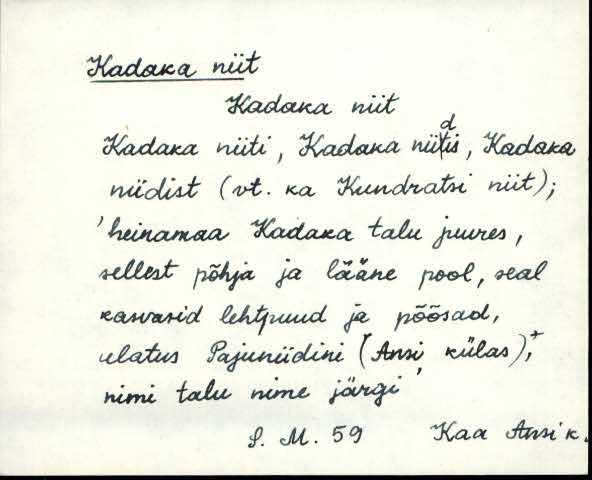 Kadaka niit
Kadaka niit
Kadaka niiti, Kadaka niidis, Kadaka
niidist (vt. ka Kundratsi niit);
'heinamaa Kadaka talu juures,
sellest põhja ja lääne pool, seal
kasvasid lehtpuud ja põõsad,
ulatus Pajuniidini (Ansi külas),+
nimi talu nime järgi'
S. M. 59 Kaa Ansi k.